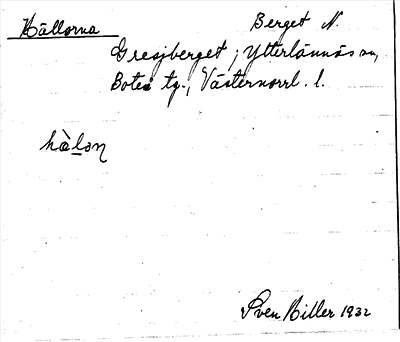 Hällorna Berget N.
Gresjberget, Ytterlännäs sn,
Botea tg., Västernorrl. l.
hàlon
Sven Hiller 1932